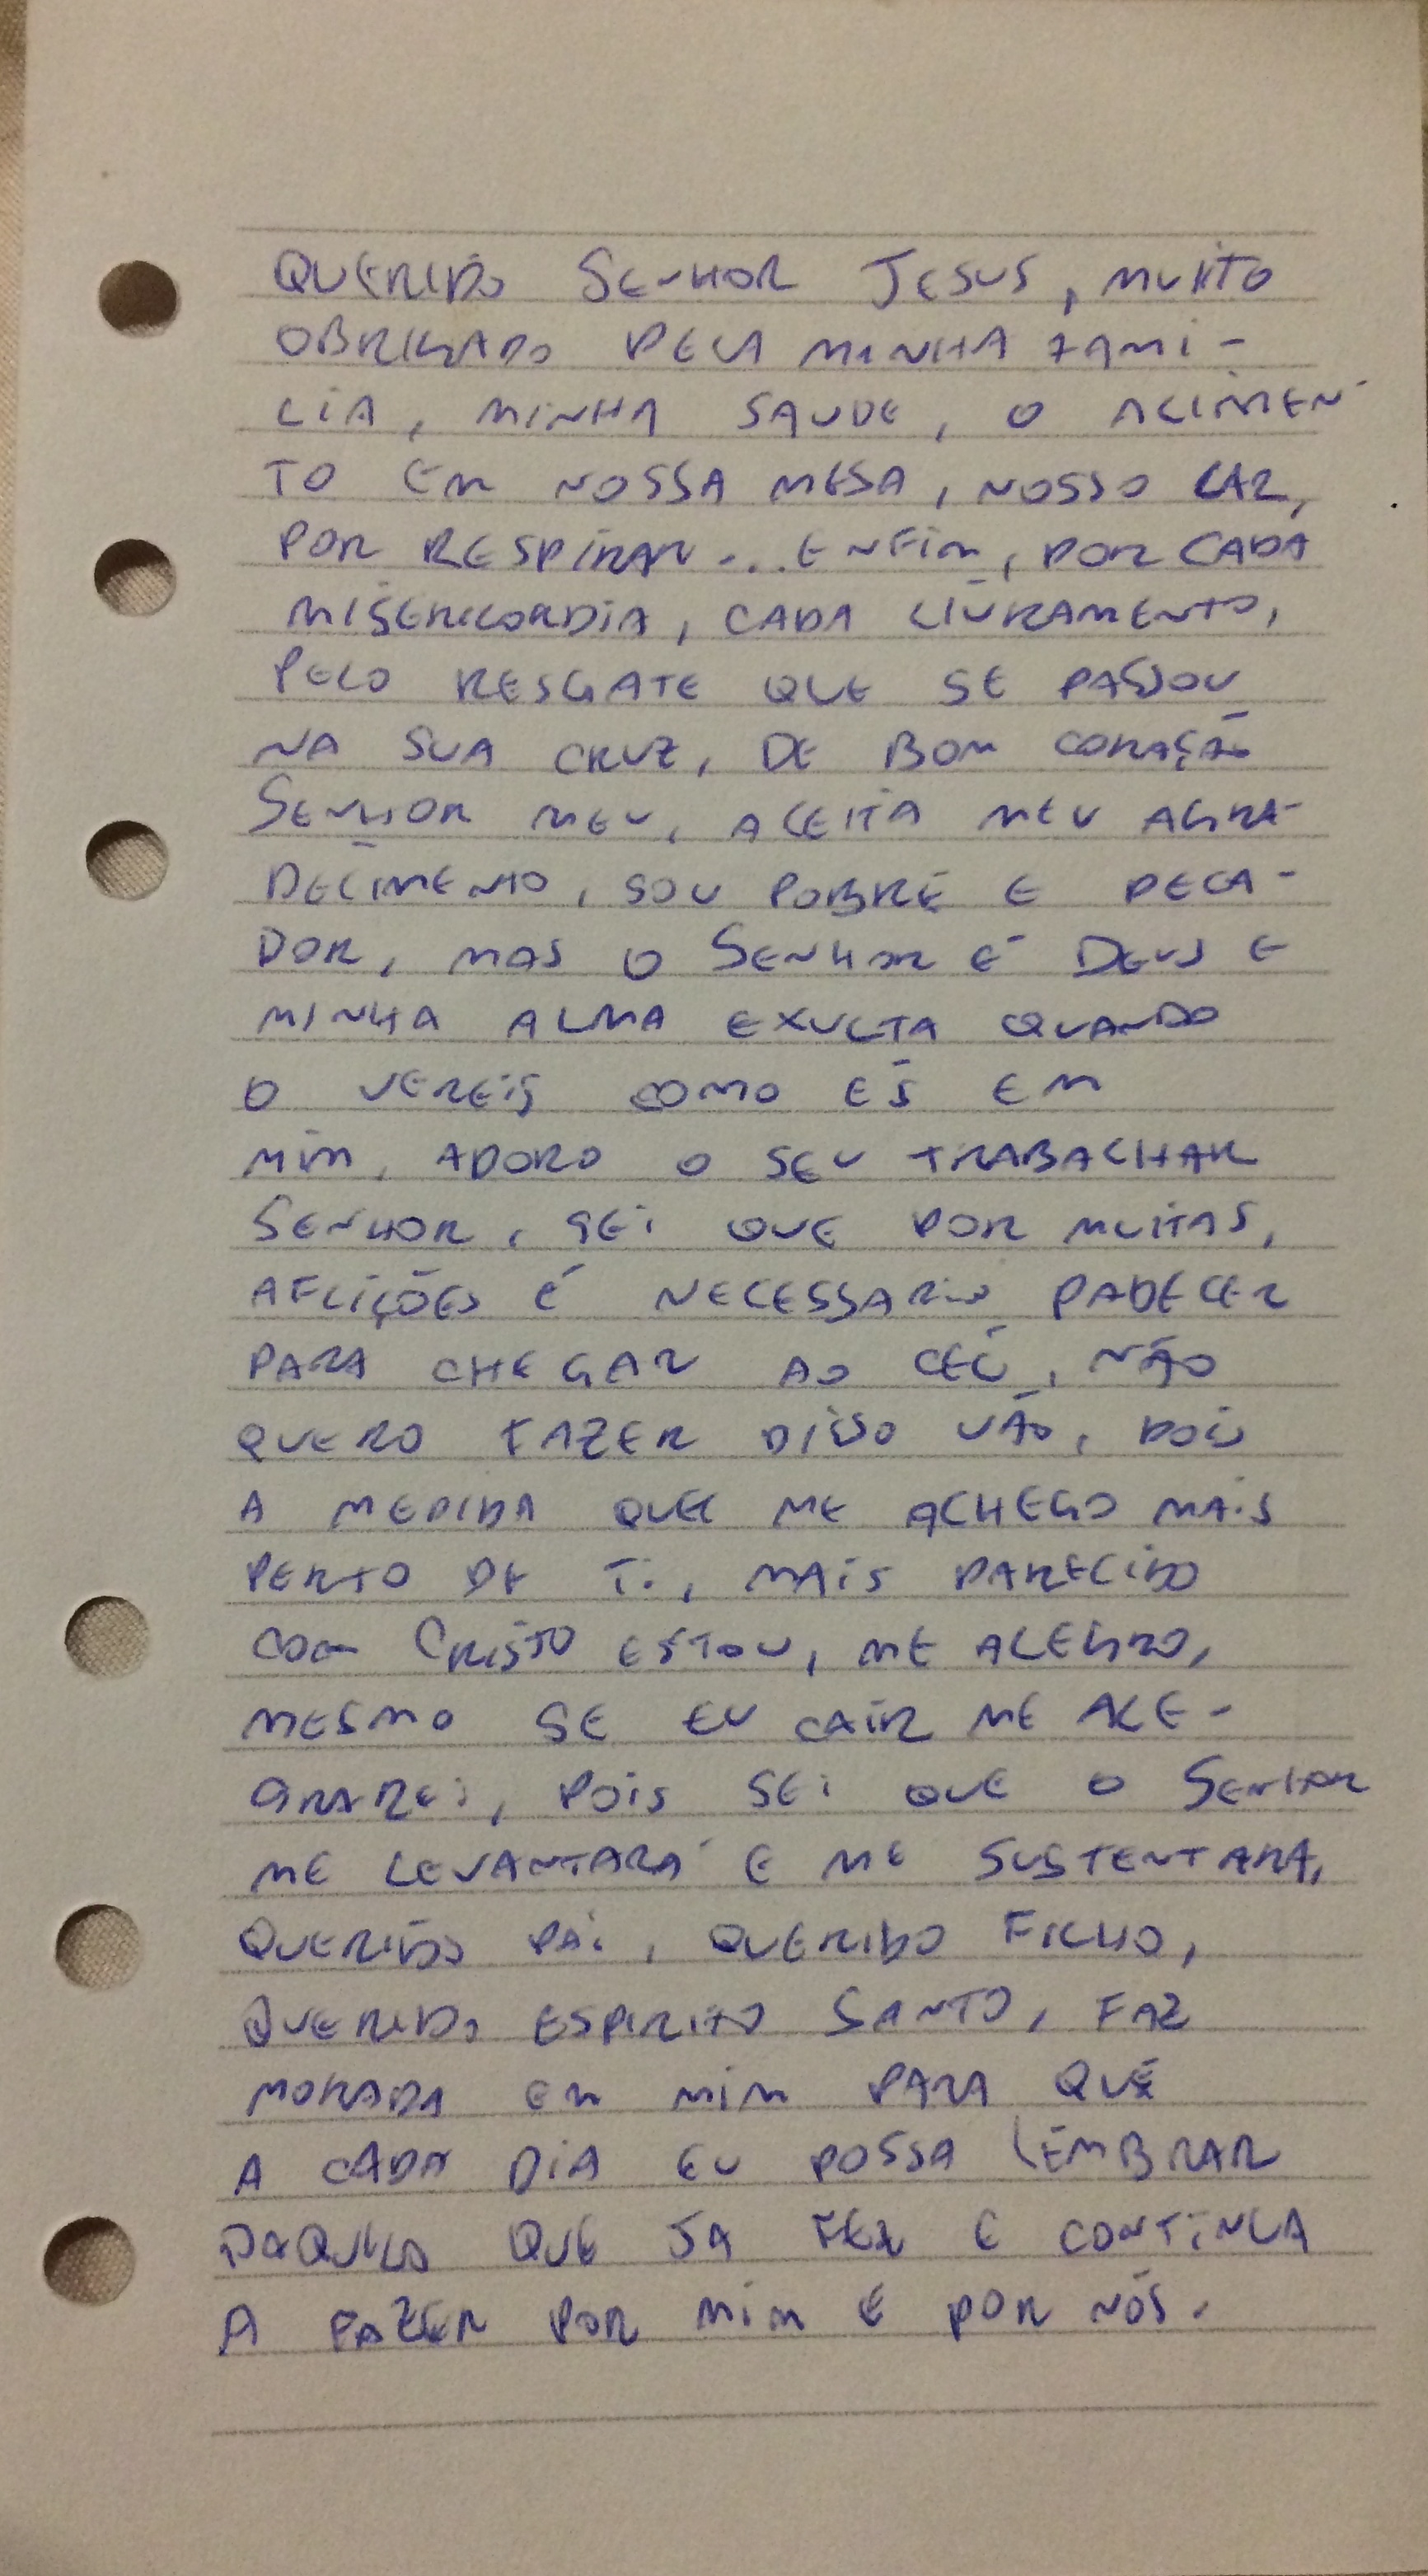 QUERIDO SENHOR JESUS, MUITO
OBRIGADO PELA MINHA FAMI-
LIA, MINHA SAUDE, O ALIMEN-
TO EM NOSSA MESA, NOSSO LAR,
POR RESPIRAR... ENFIM, POR CADA
MISERICORDIA, CADA LIVRAMENTO,
PELO RESGATE QUE SE PASSOU
NA SUA CRUZ, DE BOM CORAÇÃO
SENHOR MEU, ACEITA MEU AGRA-
DECIMENTO, SOU POBRE E PECA-
DOR, MAS O SENHOR É DEUS E
MINHA ALMA EXULTA QUANDO
O VEREIS COMO ÉS EM
MIM, ADORO O SEU TRABALHAR
SENHOR, SEI QUE POR MUITAS,
AFLIÇÕES É NECESSARIO PADECER
PARA CHEGAR AO CÉU, NÃO
QUERO FAZER DISSO VÃO, POIS
A MEDIDA QUE ME ACHEGO MAIS
PERTO DE TI, MAIS PARECIDO
COM CRISTO ESTOU, ME ALEGRO,
MESMO SE EU CAIR ME ALE-
GRAREI, POIS SEI QUE O SENHOR
ME LEVANTARÁ E ME SUSTENTARA,
QUERIDO PAI, QUERIDO FILHO,
QUERIDO ESPIRITO SANTO, FAZ
MORADA EM MIM PARA QUE
A CADA DIA EU POSSA LEMBRAR
DAQUILO QUE JA FEZ E CONTINUA
A FAZER POR MIM E POR NÓS.